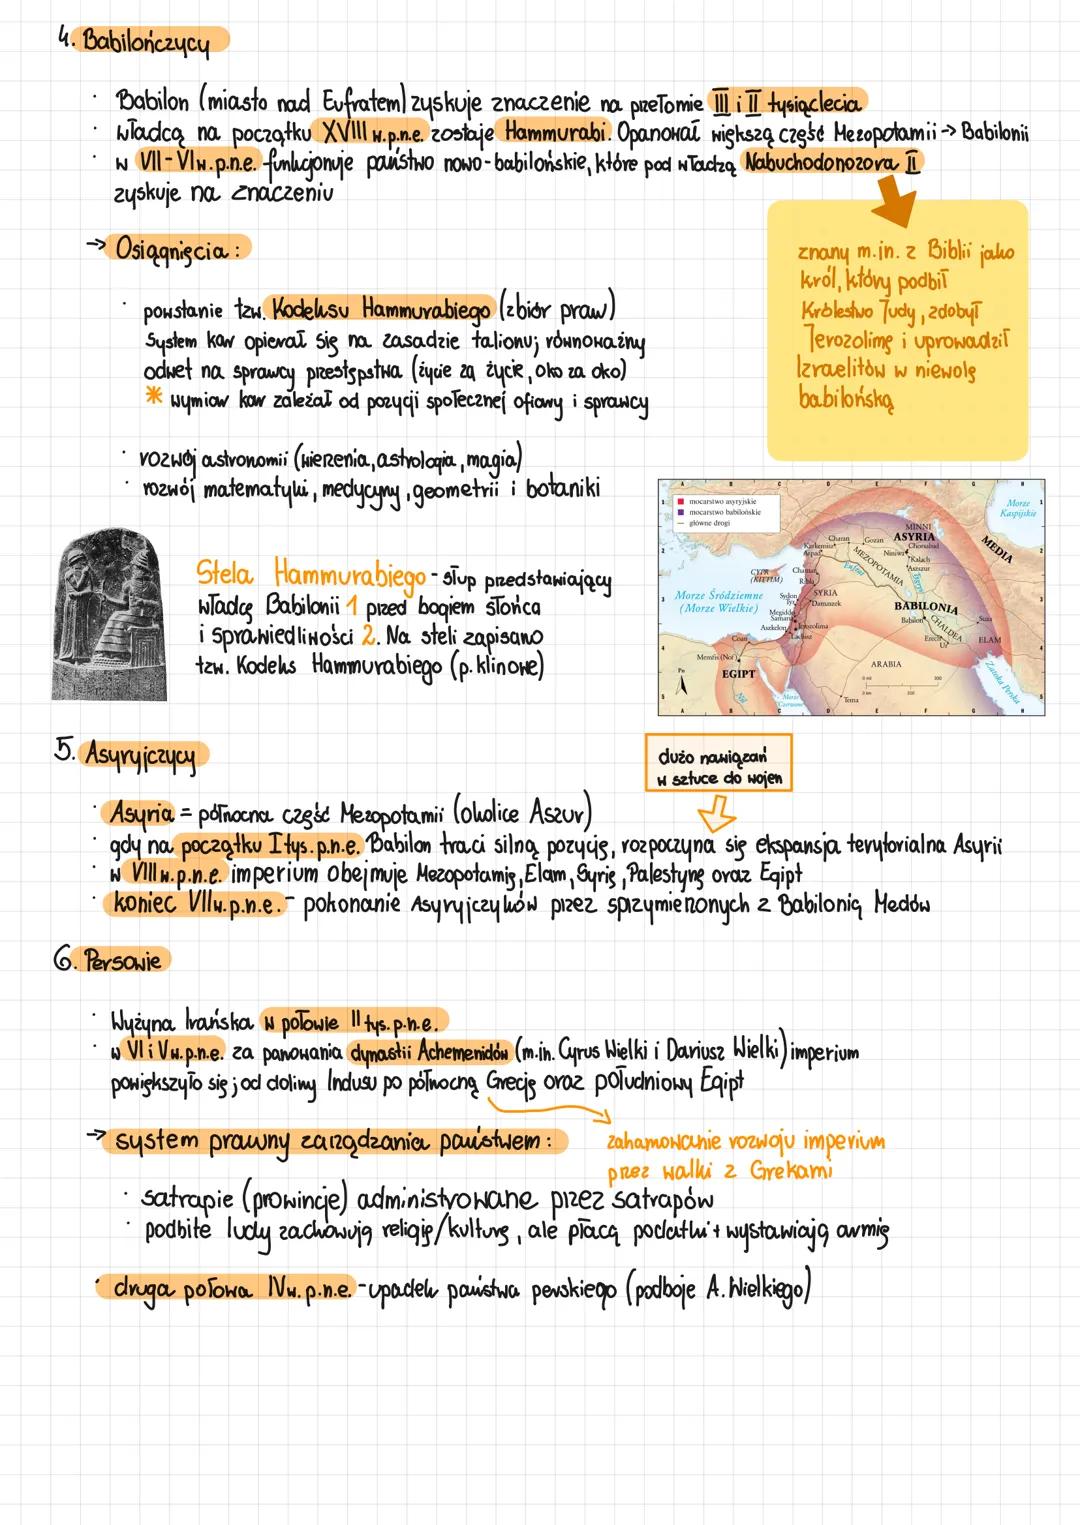 4. Babilończycy
· Babilon (miasto nad Eufratem) zyskuje znaczenie na przełomie III i II tysiąclecia
· władcą na początku XVIII w.p.n.e. zostaje Hammurabi. Opanował większą część Mezopotamii → Babilonii
· w VII-VIw.p.n.e. funkcjonuje państwo nowo-babilońskie, które pod władzą Nabuchodonozora II
zyskuje na znaczeniu
znany m.in. z Biblii jako
król, który podbił
Królestwo Judy, zdobył
Jerozolimę i uprowadził
Izraelitów w niewolę
babilońską
→ Osiągnięcia:
· powstanie tzw. Kodeksu Hammurabiego (zbiór praw)
system kar opierał się na zasadzie talionu; równoważny
odwet na sprawcy przestępstwa (życie za życie, oko za oko)
* wymiar kar zależał od pozycji społecznej ofiary i sprawcy
· rozwój astronomii (wierzenia, astrologia, magia)
· rozwój matematyki, medycyny, geometrii i botaniki
Stela Hammurabiego - słup przedstawiający
władcę Babilonii 1 przed bogiem słońca
i sprawiedliwości 2. Na steli zapisano
tzw. Kodeks Hammurabiego (p. klinowe)
mocarstwo asyryjskie
mocarstwo babilońskie
główne drogi
Morze
Kaspijskie
MINNI
ASYRIA
MEDIA
Charan
Gozan
Chorsabad
Karkemisz
Arpad
Niniwa
Kalach
Aszszur
MEZOPOTAMIA
Eufrat
Tygrys
CYPR
(KITTIM)
Chamat
Ribla
SYRIA
Morze Śródziemne
(Morze Wielkie)
Sydon
Tyr
Damaszek
BABILONIA
Babilon
CHALDEA
Suza
Megiddo
Samaria
Aszkelon
Jerozolima
Lachisz
Erech
Ur
ELAM
Coan
Memfis (Nof)
EGIPT
ARABIA
Zatoka Perska
Nil
Morze
Czerwone
Tema
Pn
0 mil
300
0 km
5. Asyryjczycy
dużo nawiązań
w sztuce do wojen
· Asyria = północna część Mezopotamii (okolice Aszur)
· gdy na początku I tys. p.n.e. Babilon traci silną pozycję, rozpoczyna się ekspansja terytorialna Asyrii
· w VIII w.p.n.e. imperium obejmuje Mezopotamię, Elam, Syrię, Palestynę oraz Egipt
· koniec VIIw.p.n.e. - pokonanie Asyryjczyków przez sprzymierzonych z Babilonią Medów
6. Persowie
· Wyżyna Irańska w połowie II tys. p.n.e.
· w VI i V w.p.n.e. za panowania dynastii Achemenidów (m.in. Cyrus Wielki i Dariusz Wielki) imperium
powiększyło się; od doliny Indusu po północną Grecję oraz południowy Egipt
→ system prawny zarządzania państwem:
zahamowanie rozwoju imperium
przez walki z Grekami
· satrapie (prowincje) administrowane przez satrapów
· podbite ludy zachowują religię/kulturę, ale płacą podatki + wystawiają armię
· druga połowa IVw. p.n.e. - upadek państwa perskiego (podboje A. Wielkiego)